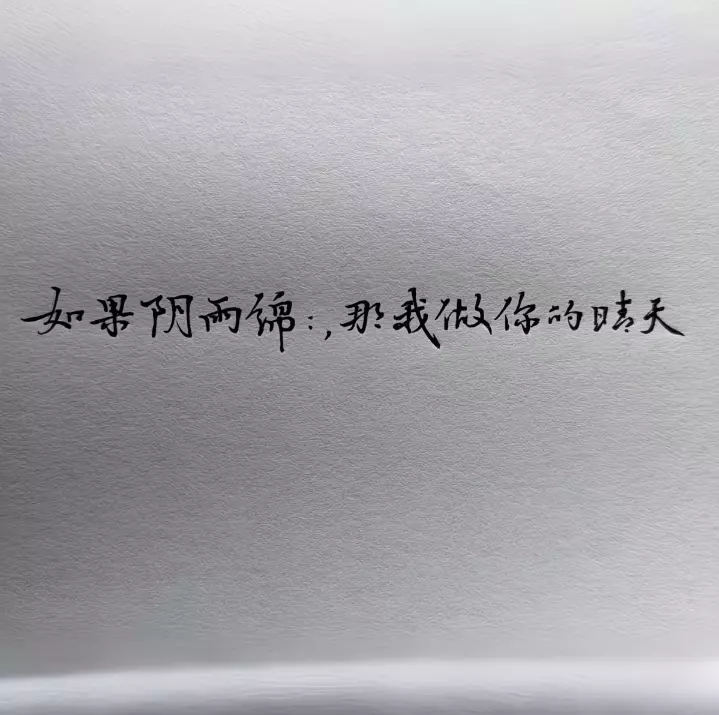 如果阴雨绵:,那我做你的晴天